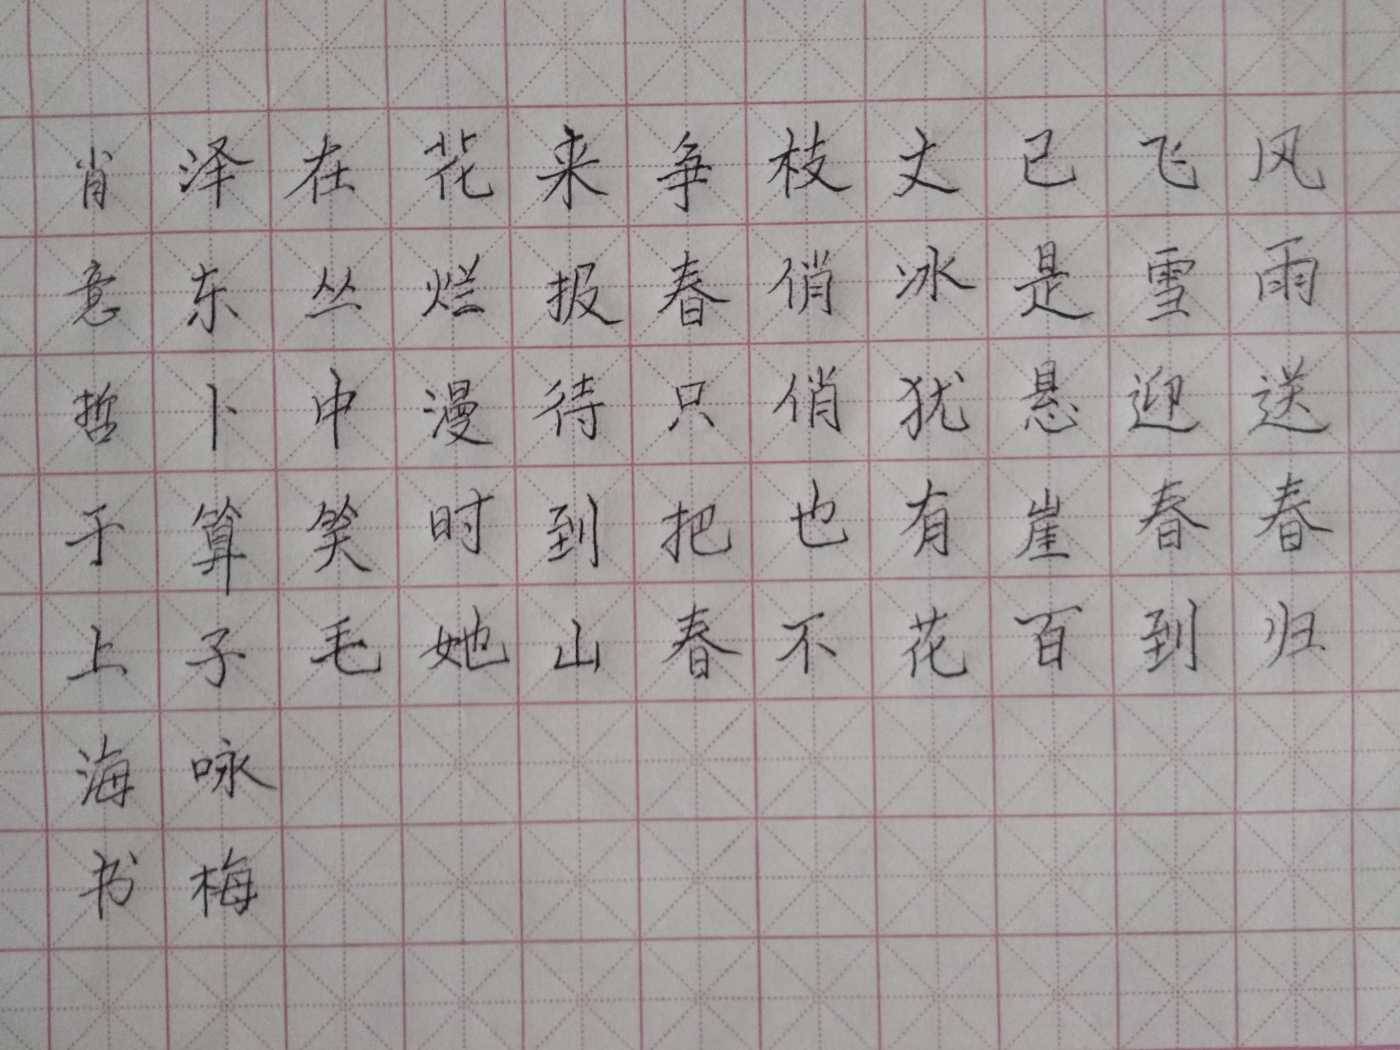 风雨送春归
飞雪迎春到
已是悬崖百
丈冰犹有花
枝俏俏也不
争春只把春
来报待到山
花烂漫时她
在丛中笑毛
泽东卜算子咏梅
肖意哲于上海书